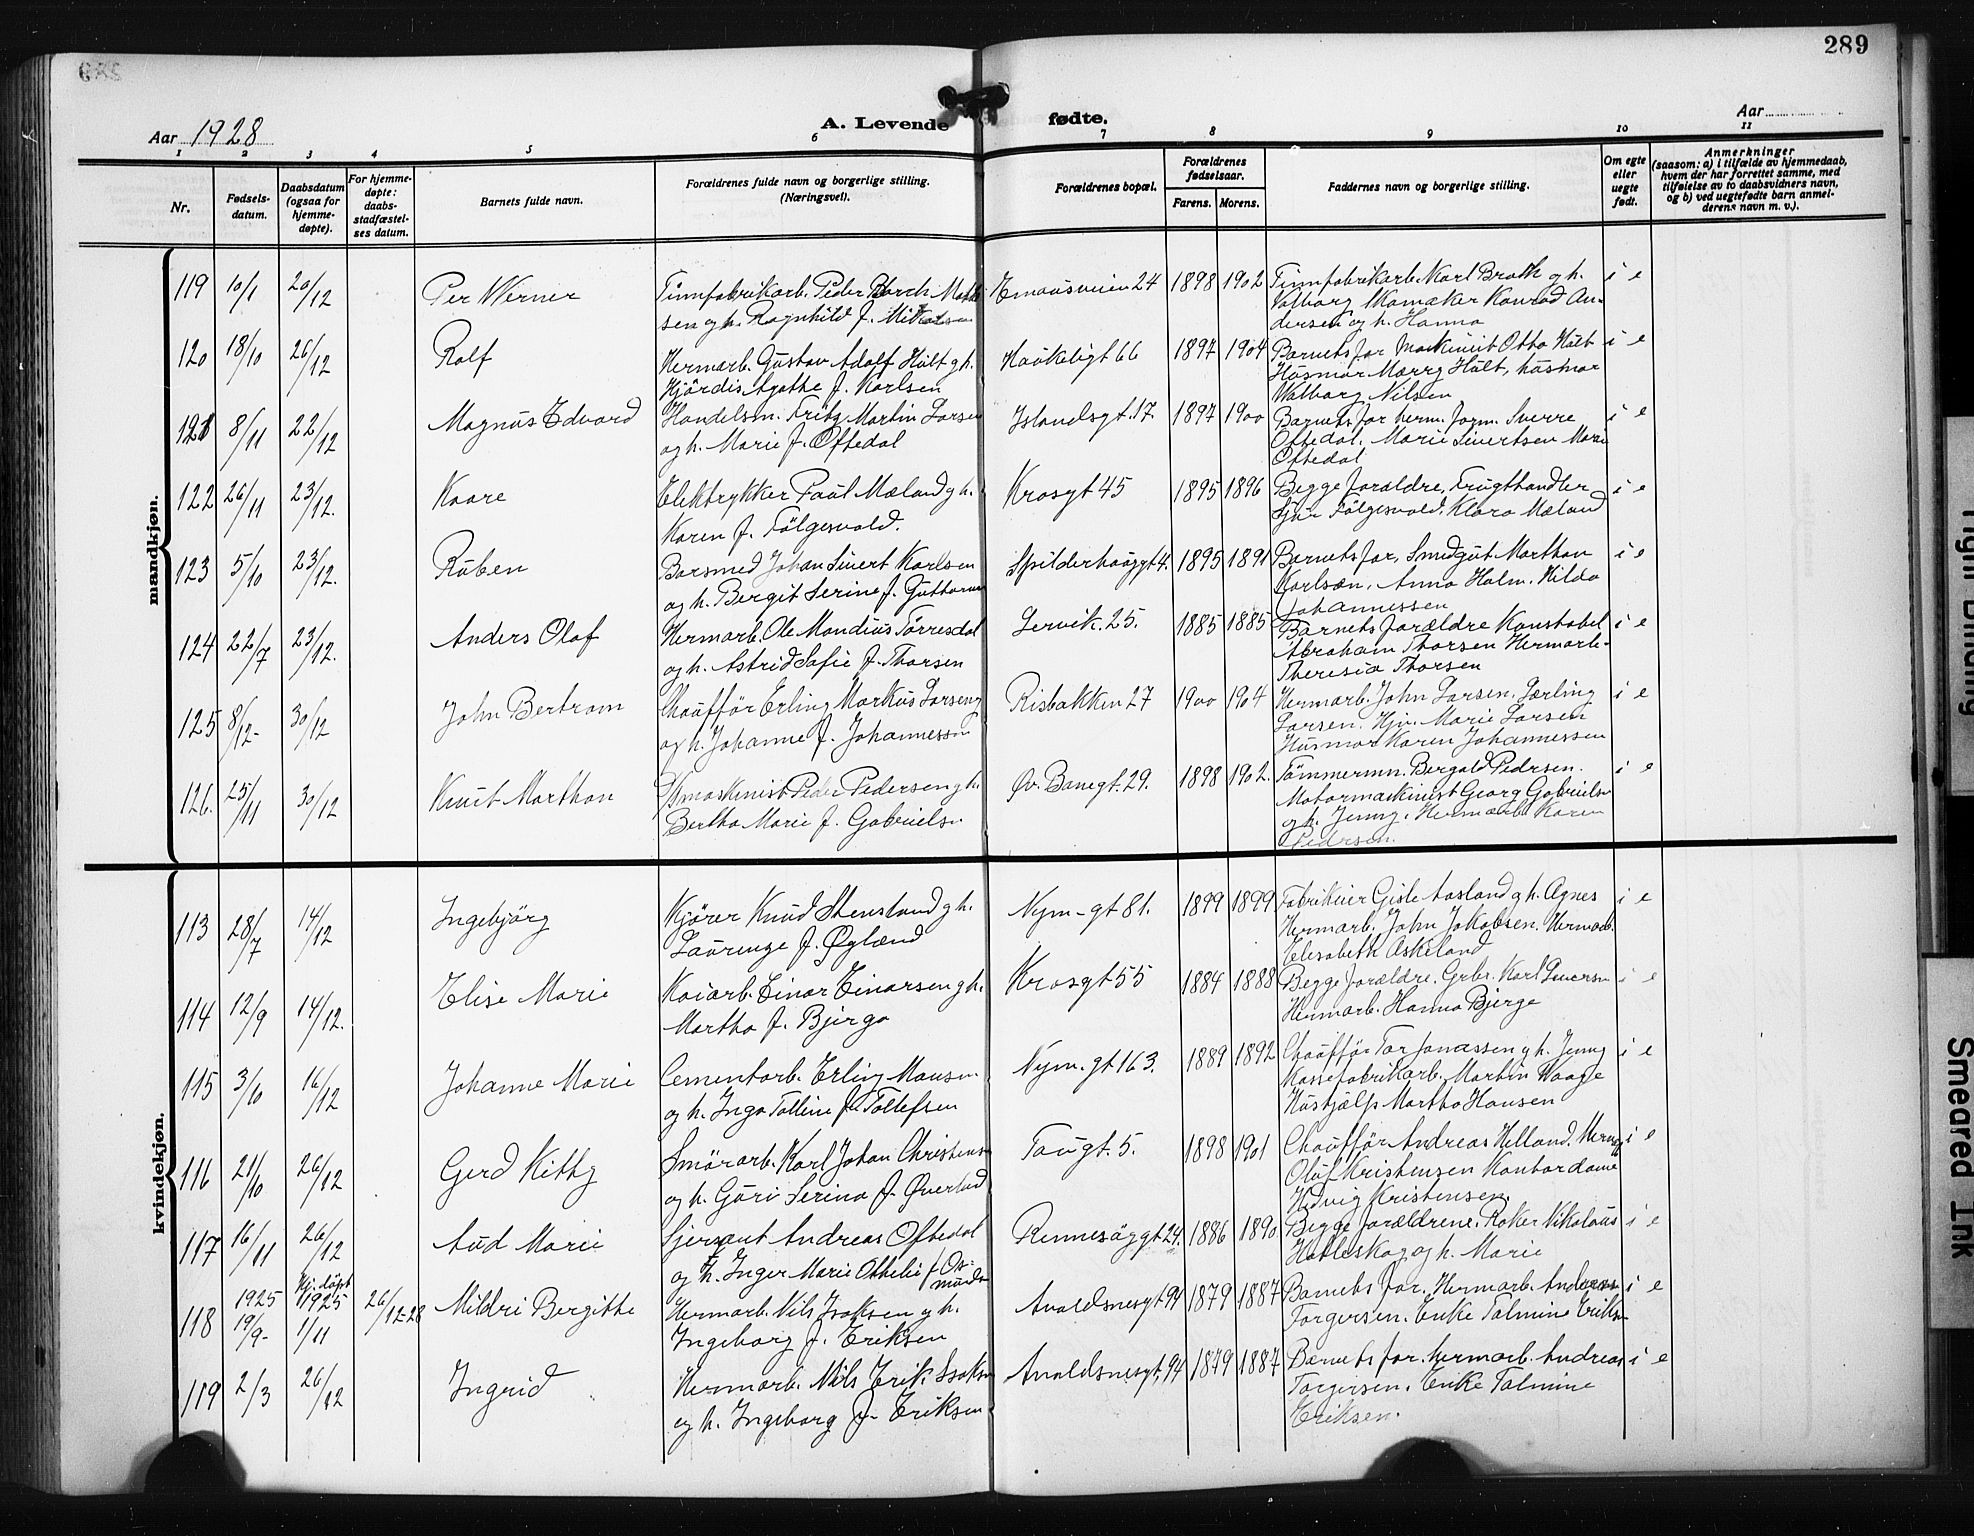 289
Aar 1928
A. Levende fødte.
Aar
1 2 3 4 5 6 7 8 9 10 11
Nr.
Fødsels-
datum.
Daabsdatum
(ogsaa for
hjemme-
døpte).
For hjemme-
døpte:
daabs-
stadfæstel-
ses datum.
Barnets fulde navn.
Forældrenes fulde navn og borgerlige stilling.
(Næringsvei).
Forældrenes bopæl.
Forældrenes
fødselsaar.
Farens. Morens.
Faddernes navn og borgerlige stilling.
Om egte
eller
uegte
født.
Anmerkninger
(saasom: a) i tilfælde av hjemmedaab,
hvem der har forrettet samme, med
tilføielse av to daabsvidners navn,
og b) ved uegtefødte barn anmel-
derens navn m. v.).
mandkjøn.
119 10/1 20/12 Per Werner
Tinnfabrikarb. Peder
sen og h. Ragnhild f.
Emausveien 24 1898 1902
Tinnfabrikarb. Karl Brath og h.
Valborg Skomaker Konrad An-
dersen og h. Hanna
i e
120 18/10 26/12 Rolf
Hermarb. Gustav Adolf Hult g h.
Hjördis Agathe f. Karlsen
Haukeligt 66 1897 1904
Barnets far Maskinist Otto Hult
Husmor Marry Hult, husmor
Valborg Nilsen
i e
121 8/11 22/12 Magnus Edvard
Handelsm. Fritz Martin Larsen
og h. Marie f. Oftedal
Islandsgt. 17. 1897 1900
Barnets far herm. form. Sverre
Oftedal. Marie Sivertsen Marie
Oftedal
i e
122 26/11 23/12. Kaare
Elektrykker Paul Mæland g h.
Karen f. Fölgesvold.
Krosgt 45 1895 1896
Begge forældre, Frugthandler
Fölgesvold. Klara Mæland
i e
123 5/10 23/12. Ruben
Johan Sivert Karlsen
og h. Bergit Serine f. Guttorm
Spilderhauggt 4. 1895 1891
Barnets far, Smedgut Marthon
Karlsen, Anna Holm. Hilda
Johannessen
i e
124 22/7 23/12. Anders Olaf
Hermarb. Ole Mandius Törresdal
og h. Astrid Sofie f. Thorsen
Lervik. 25. 1885 1885
Barnets forældre Konstabel
Abraham Thorsen Hermarb.
Theresia Thorsen
i e
125 8/12- 30/12 John Bertram
Chaufför Erling Markus Larsen g
og h. Johanne f. Johannessen
Risbakken 27 1900 1904
Hermarb. John Larsen. Lærling
Larsen. Hjv. Marie Larsen
Husmor Karen Johannessen
i e
126. 25/11 30/12 Knut Marthon
maskinist Peder Pedersen g h.
Bertha Marie f. Gabrielsn
Øv. Banegt. 29. 1898 1902.
Tömmermn. Bergald Pedersen.
Motormaskinist Georg Gabrielsn
og h. Jenny. Hermarb. Karen
Pedersen.
i e
kvindekjøn.
113 28/7 14/12 Ingebjörg
Kjörer Knud Stensland g h.
Laurenze f. Øglænd
Nym-gt 81. 1899 1899
Fabrikeier Gisle Aasland g h. Agnes
Hermarb. John Jakobsen. Hermarb.
Elisabeth Askeland
i e
114 12/9 14/12. Elise Marie
Kaiarb. Einar Einarsen g h.
Martha f. Bjerga
Krosgt 55 1884 1888
Begge forældre. Grbr. Karl
Hermarb. Hanna Bjerge
i e
115 3/10 16/12 Johanne Marie
Cementarb. Erling Hansn.
og h. Inga Tolline f. Tollefsen
Nym. gt 163. 1889 1892
Chaufför Tor Jonassen g h. Jenny
Kassefabrikarb. Martin Haage
Hushjælp Martha Hansen
i e
116 21/10 26/12 Gerd Kitty
Smörarb. Karl Johan Christensn
og h. Guri Serina f. Øverlad
Taugt. 5. 1898 1901
Chaufför Andreas Helland.
Oluf Kristensen Kontordame
Hedvig Kristensen.
i e
117 16/11 26/12 Aud Marie
Sjersant Andreas Oftedal
og h. Inger Marie Othelie f. Os-
munds
Rennesöygt 24. 1886 1890
Begge forældrene. Røker Nikolaus
Hatleskog og h. Marie
i e
118 1925 19/9- Hj. døpt 1925 1/11 26/12-28 Mildri Bergitte
Hermarb. Nils Isaksen g h.
Ingeborg f. Eriksen
Avaldsnesgt 94 1879 1887
Barnets far. Hermarb. Andreas
Torgersen. Enke Talmine Eriksn
i e
119 2/3 26/12 Ingrid
Hermarb. Nils Erik Isaksn
og h. Ingeborg f. Eriksen
Avaldsnesgt. 94 1879 1887
Barnets far. hermarb. Andreas
Torgersen. Enke Talmine
Eriksen.
i e
Tight Binding
Smeared Ink